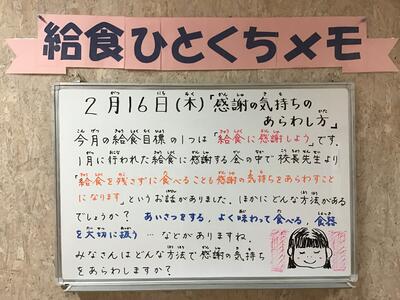 給食ひとくちメモ
2月16日(木)「感謝の気持ちの
あらわし方」
今月の給食目標の1つは「給食に感謝しよう」です。
1月に行われた給食に感謝する会の中で校長先生より
「給食を残さずに食べることも感謝の気持ちをあらわすこと
になります」というお話がありました。ほかにどんな方法がある
でしょうか? あいさつをする、よく味わって食べる、食器
を大切に扱う … などがありますね。
みなさんはどんな方法で感謝の気持ち
をあらわしますか?